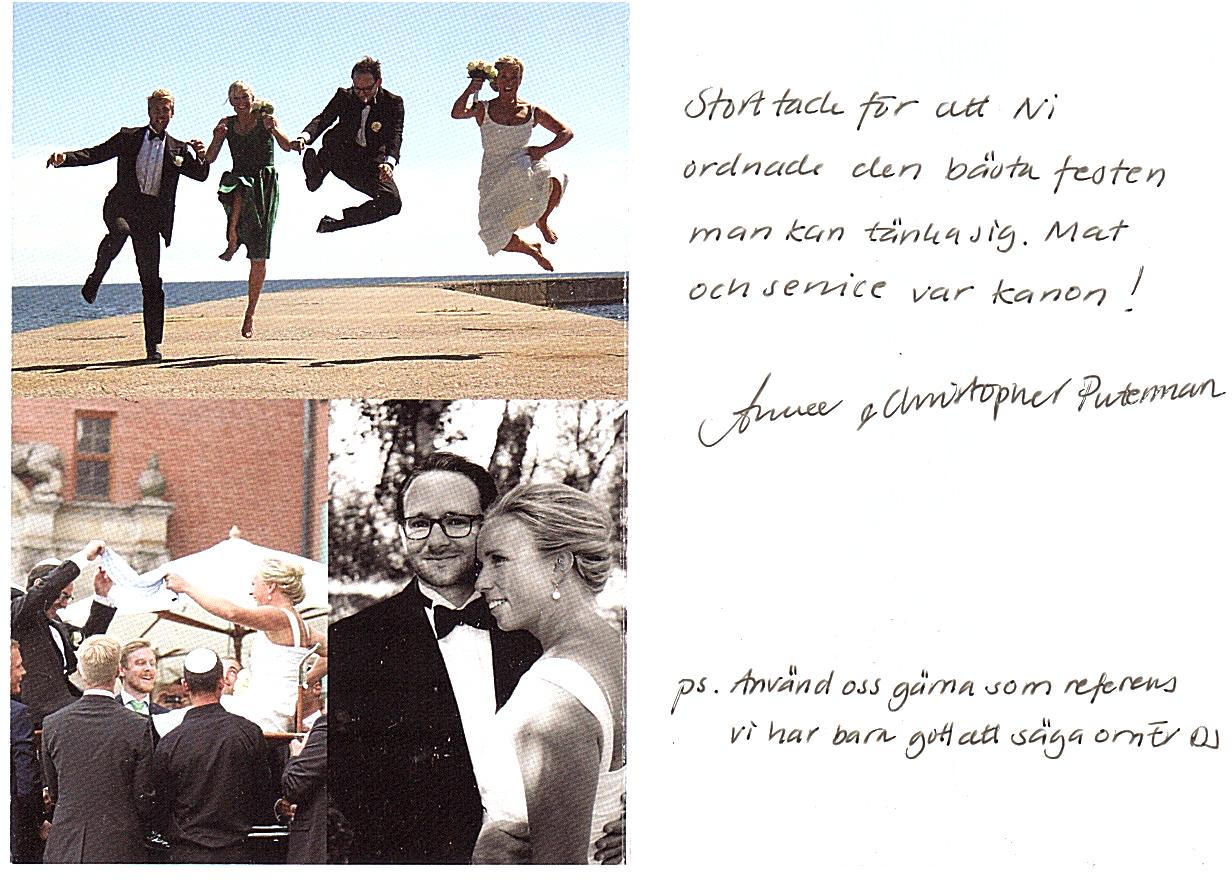 Stort tack för att Ni
ordnade den bästa festen
man kan tänka sig. Mat
och service var kanon!
& Christopher Puterman
ps. Använd oss gärna som referens
vi har bara gott att säga om Er